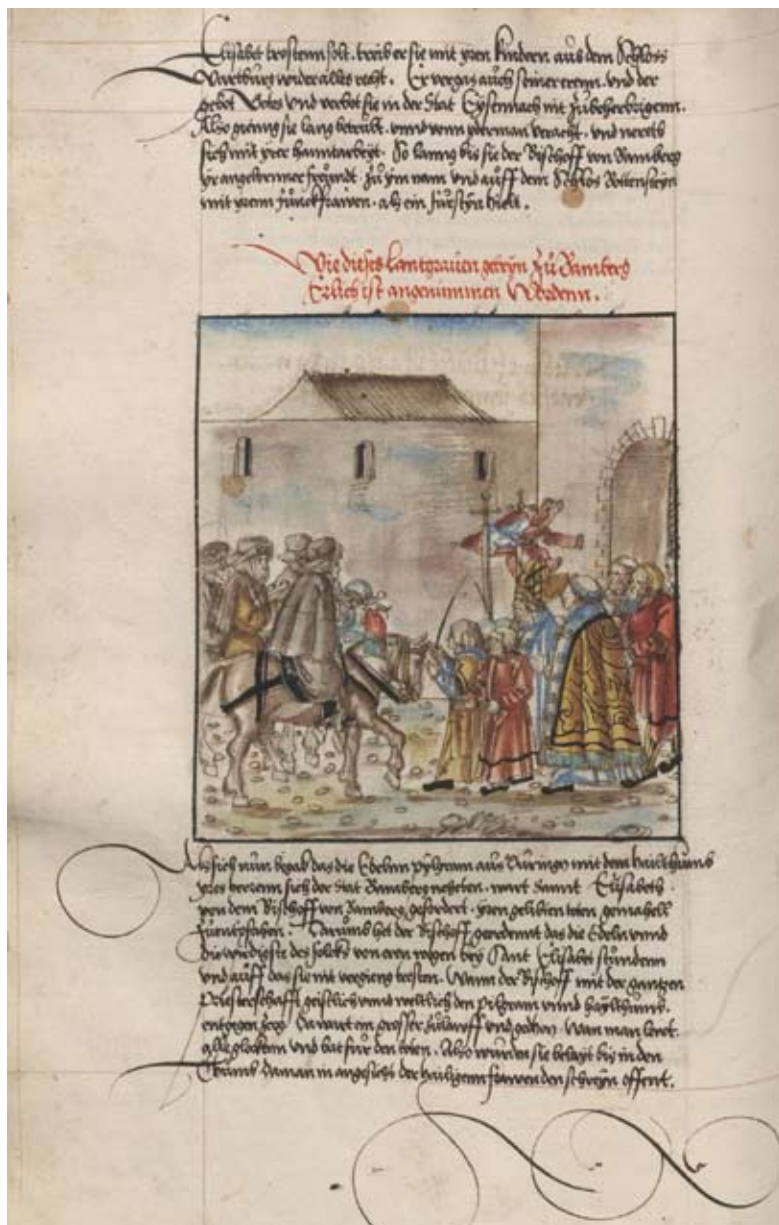 Elisabet trostenn solt. treib er sie mit yren kindern aus dem Schloss
Wartburg wider alles recht. Er vergas auch seiner treuen. vnd der
gebot Gotes vnd verbot sie in der stat Eysennach nit zu beherbrigenn.
Also gienng sie lang betrubt. vnnd vonn yderman veracht. vnd neret
sich mit yrer hanntarbeyt. So lanng bis sie der Bischoff von Bamberg
yr angeborner freundt. zu ym nam vnd auff dem Schlos Botensteyn
mit yrenn Junckfrawen. als ein furstyn hielt.
Wie dieses lantgrauen gebeyn zu Bamberg
Erlich ist angenummen Wordenn.
Als sich nun begab das die Edelnn pylgram aus Duringen mit dem hailthumb
yres herrenn sich der stat Bamberg neheten. wart Sannt Elisabeth
von dem Bischoff von Bamberg gefordert. yren gelibten toten gemahell
zu entpfahen. Darumb het der Bischoff geordennt das die Edeln vnnd
die wirdigste des folcks von eren wegen bey Sant Elisabet stundenn
vnd auff das sie nit vergieng trosten. Wann der Bischoff mit der gantzen
Priesterschafft geistlich vnnd weltlich den pilgram vnnd haylthumb.
entgegen zog. Da wart ein grosser zulauff vnd gedron. Wan man leut.
alle glocken vnd bat fur den toten. Also wurden sie belayt bis in den
Thumb. da man in angesicht der heiligenn frawen den schreyn offent.